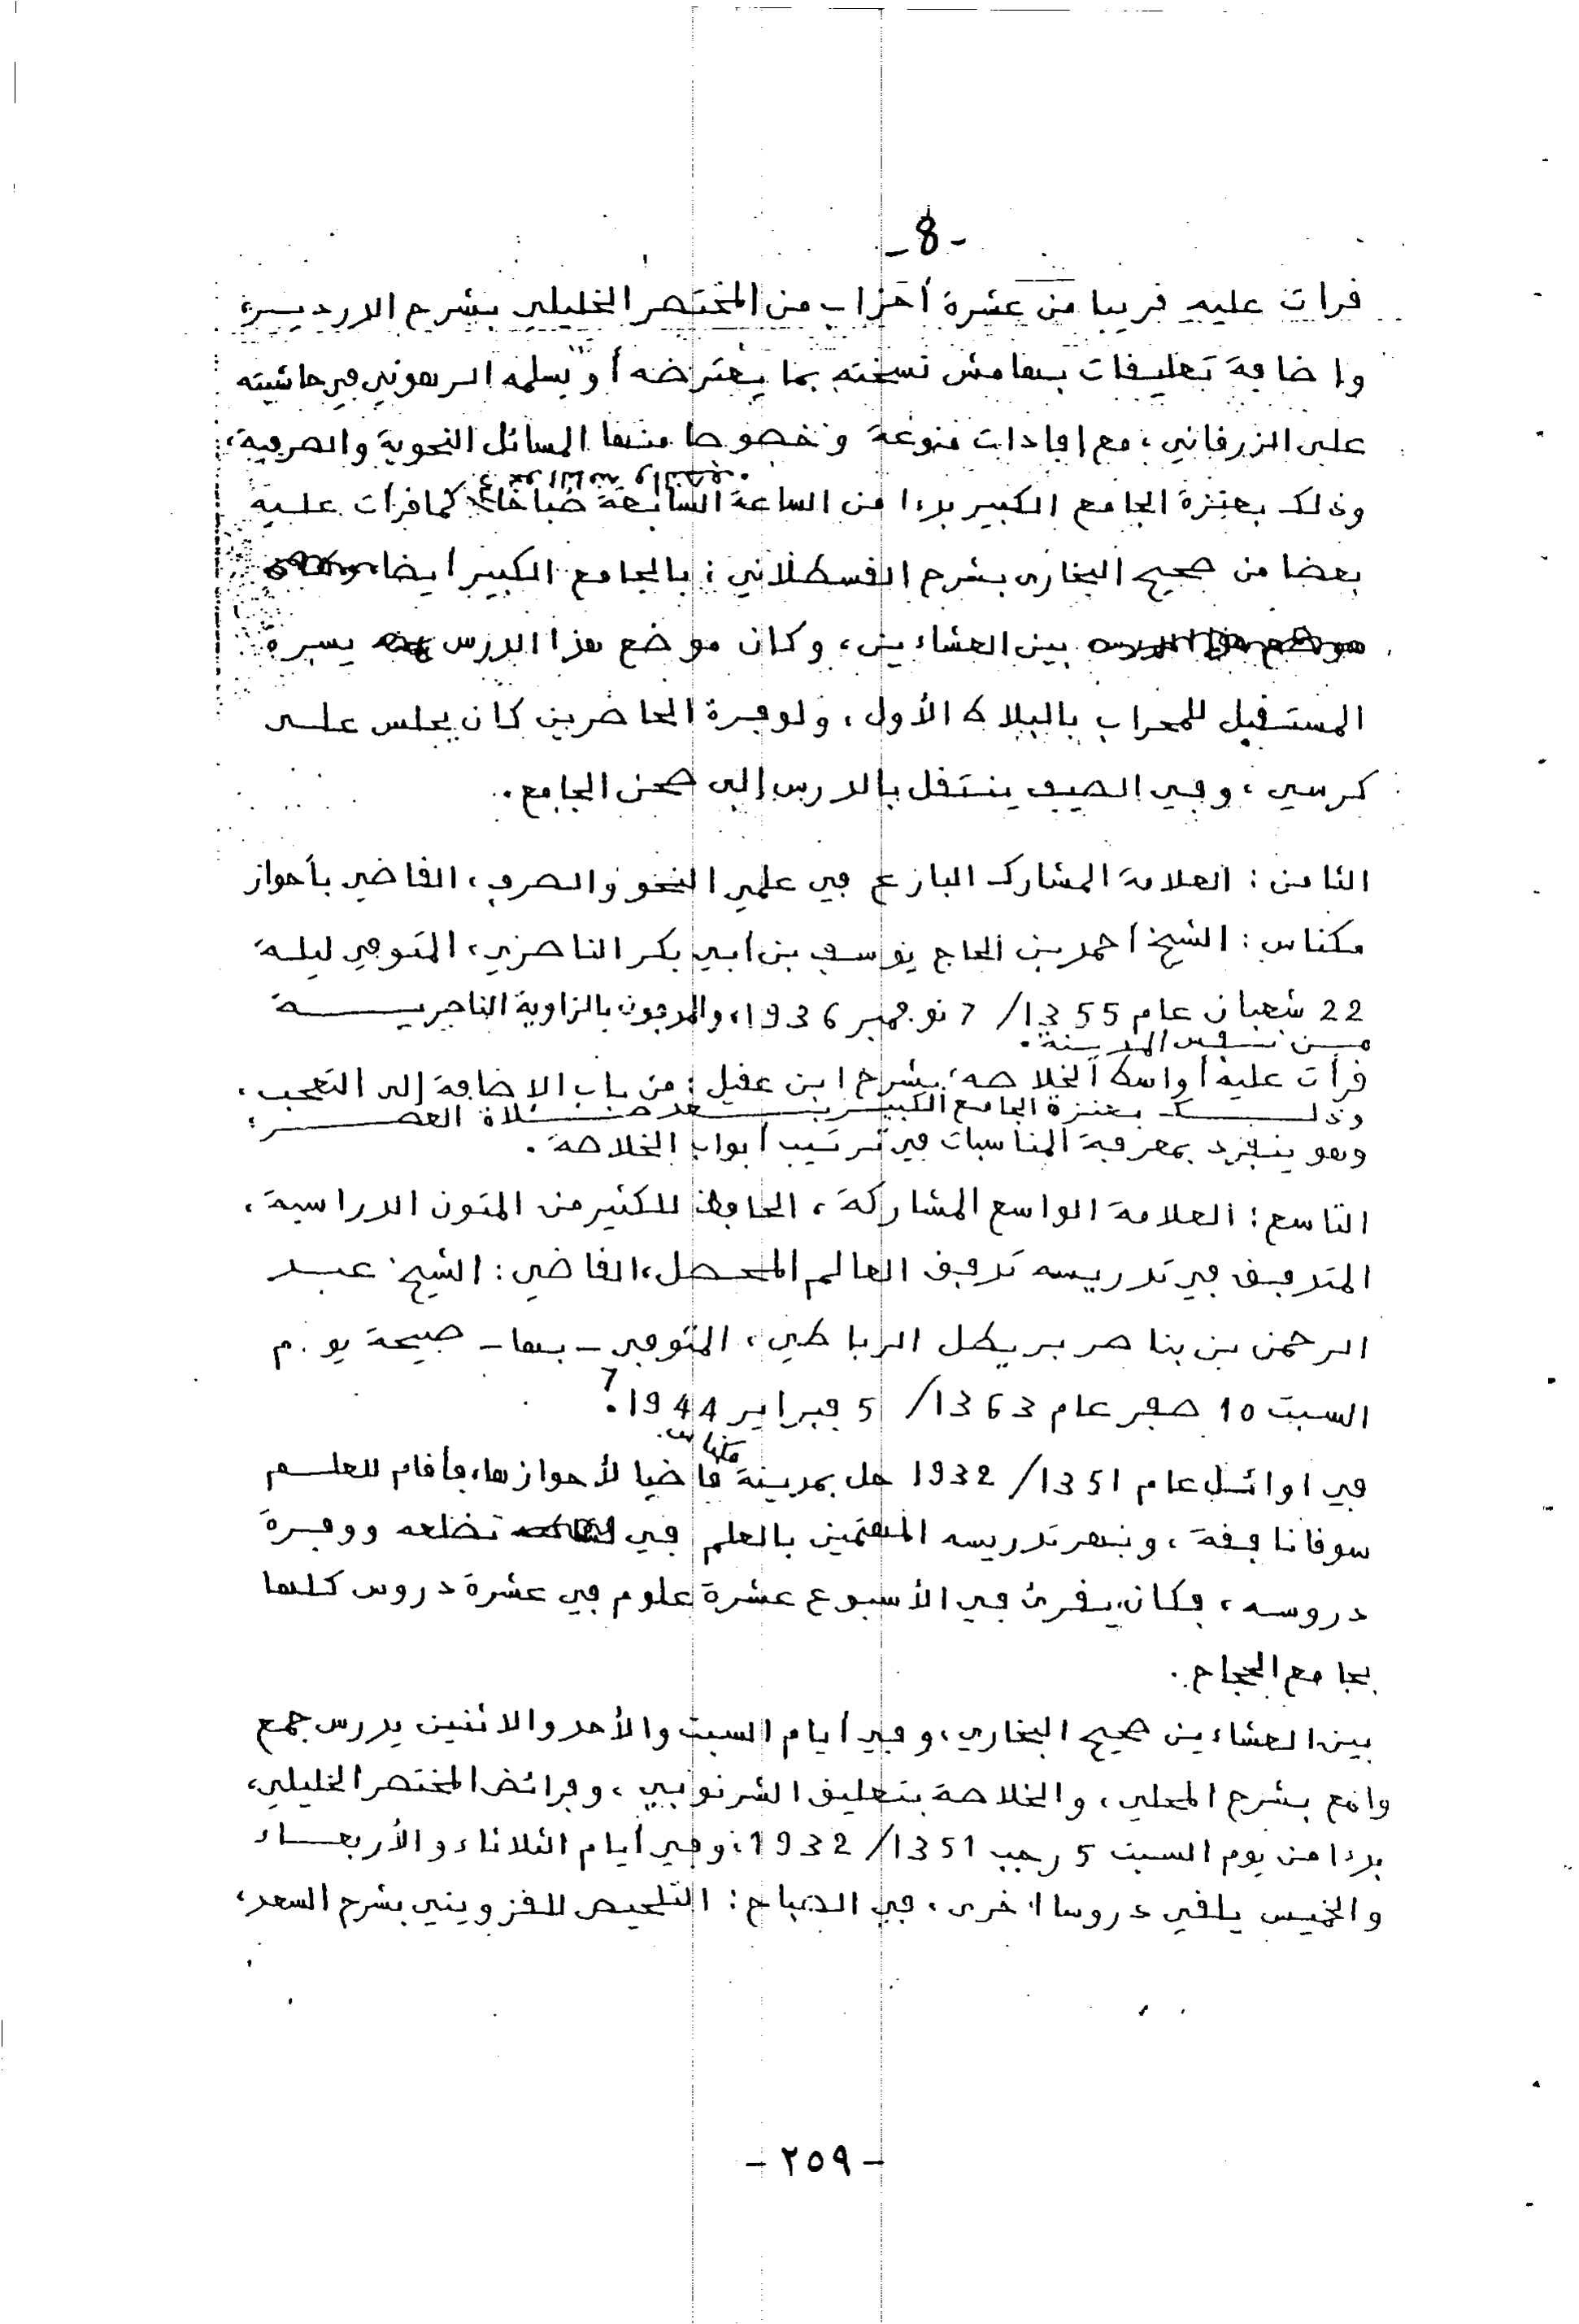 -8-
قرأت عليه قريبا من عشرة أحزاب من المختصر الخليلي بشرح الدردير،
وإضافة تعليقات بهامش نسخته بما يعترضه أو يسلمه الرهوني في حاشيته
على الزرقاني، مع إفادات منوعة وخصوصا منها المسائل النحوية والصرفية،
وذلك بعنزة الجامع الكبير بدءا من الساعة السابعة صباحا كما قرأت عليه
بعضا من صحيح البخاري بشرح القسطلاني: بالجامع الكبير أيضا
بين العشاءين، وكان موضع هذا الدرس يسرة
المستقبل للمحراب بالبلاط الأول، ولوفرة الحاضرين كان يجلس على
كرسي، وفي الصيف ينتقل بالدرس إلى صحن الجامع.
الثامن: العلامة المشارك البارع في علمي النحو والصرف، القاضي بأحواز
مكناس: الشيخ أحمد بن الحاج يوسف بن أبي بكر الناصري، المتوفى ليلة
22 شعبان عام 1355/ 7 نوفمبر 1936، والمدفون بالزاوية الناصرية
من نفس المدينة.
قرأت عليه أواسط الخلاصة بشرح ابن عقيل: من باب الإضافة إلى التعجب،
وذلك بعنزة الجامع الكبير بعد صلاة العصر؛
وهو ينفرد بمعرفة المناسبات في ترتيب أبواب الخلاصة.
التاسع: العلامة الواسع المشاركة، الحافظ للكثير من المتون الدراسية،
المتدفق في تدريسه تدفق العالم المحصل، القاضي: الشيخ عبد
الرحمن بن بناصر بريطل الرباطي، المتوفى - بها - صبيحة يوم
السبت 10 صفر عام 1363/ 5 فبراير 1944.
في اوائل عام 1351/ 1932 حل بمدينة مكناس قاضيا لأحوازها، فأقام للعلم
سوقا نافقة، وبهر تدريسه المهتمين بالعلم في تضلعه ووفرة
دروسه، فكان يقرئ في الأسبوع عشرة علوم في عشرة دروس كلها
بجامع الحجاج.
بين العشاءين صحيح البخاري، وفي أيام السبت والأحد والاثنين يدرس جمع
وامع بشرح المحلي، والخلاصة بتعليق الشرنوبي، وفرائض المختصر الخليلي،
بدءا من يوم السبت 5 رجب 1351/ 1932، وفي أيام الثلاثاء والأربعاء
والخميس يلقي دروسا اخرى، في الصباح: التلخيص للقزويني بشرح السعد،
- ٢٥٩ -